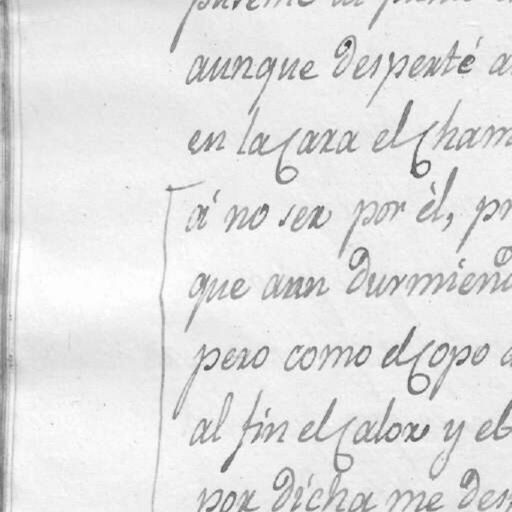 aunque desperté
en la Cara el Cham
á no ser por èl, pr
que aun durmiend
pero como el Copo
al fin el Calor y el
por dicha me des